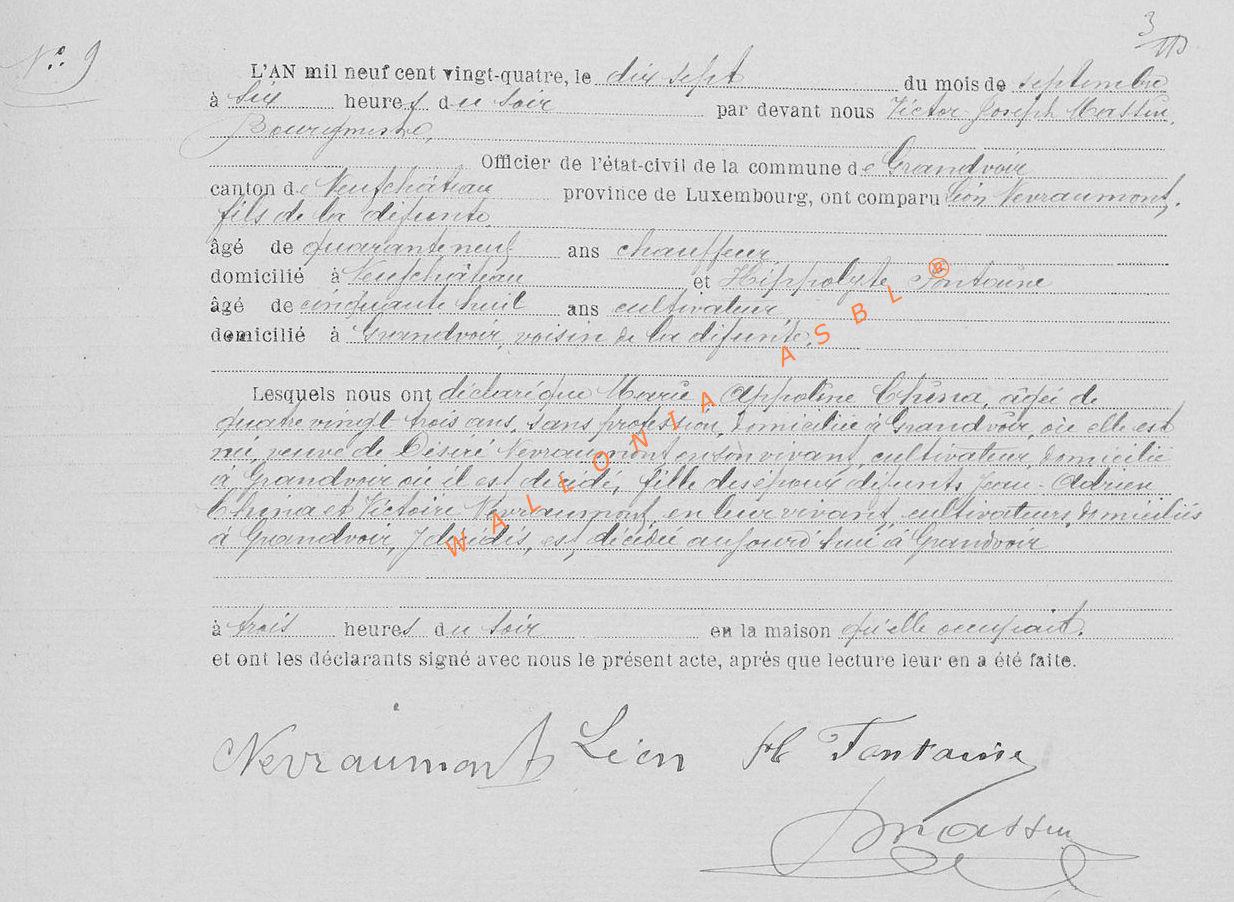 N° 9
3
L'AN mil neuf cent vingt-quatre, le dix sept du mois de septembre
à six heures du soir par devant nous Victor Joseph Massin,
Bourgmestre,
Officier de l'état-civil de la commune de Grandvoir
canton de Neufchâteau province de Luxembourg, ont comparu Léon Nevraumont,
fils de la défunte
âgé de quarante neuf ans chauffeur,
domicilié à Neufchâteau et Hippolyte Fontaine
âgé de cinquante huit ans cultivateur,
domicilié à Grandvoir, voisin de la défunte,
Lesquels nous ont déclaré que Marie Appoline Chéna, âgée de
quatre vingt trois ans, sans profession, domiciliée à Grandvoir, où elle est
née, veuve de Désiré Nevraumont en son vivant, cultivateur domicilié
à Grandvoir où il est décédé, fille des époux défunts Jean-Adrien
Chéna et Victoire Nevraumont, en leur vivant, cultivateurs, domiciliés
à Grandvoir, y décédés, est décédée aujourd'hui à Grandvoir
à trois heures du soir en la maison qu'elle occupait.
et ont les déclarants signé avec nous le présent acte, après que lecture leur en a été faite.
Nevraumont Léon H Fontaine
Massin
WALLONIA ASBL ®